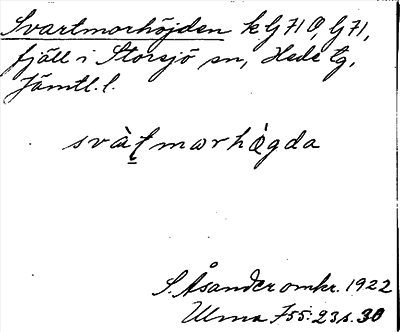 Svartmorhöjden k Gj 71 Ö, Gj 71,
fjäll i Storsjö sn, Hede tg,
Jämtl. l.
svàƭmωrhø̀gda
S. Åsander omkr. 1922
Ulma 755:23 s. 30